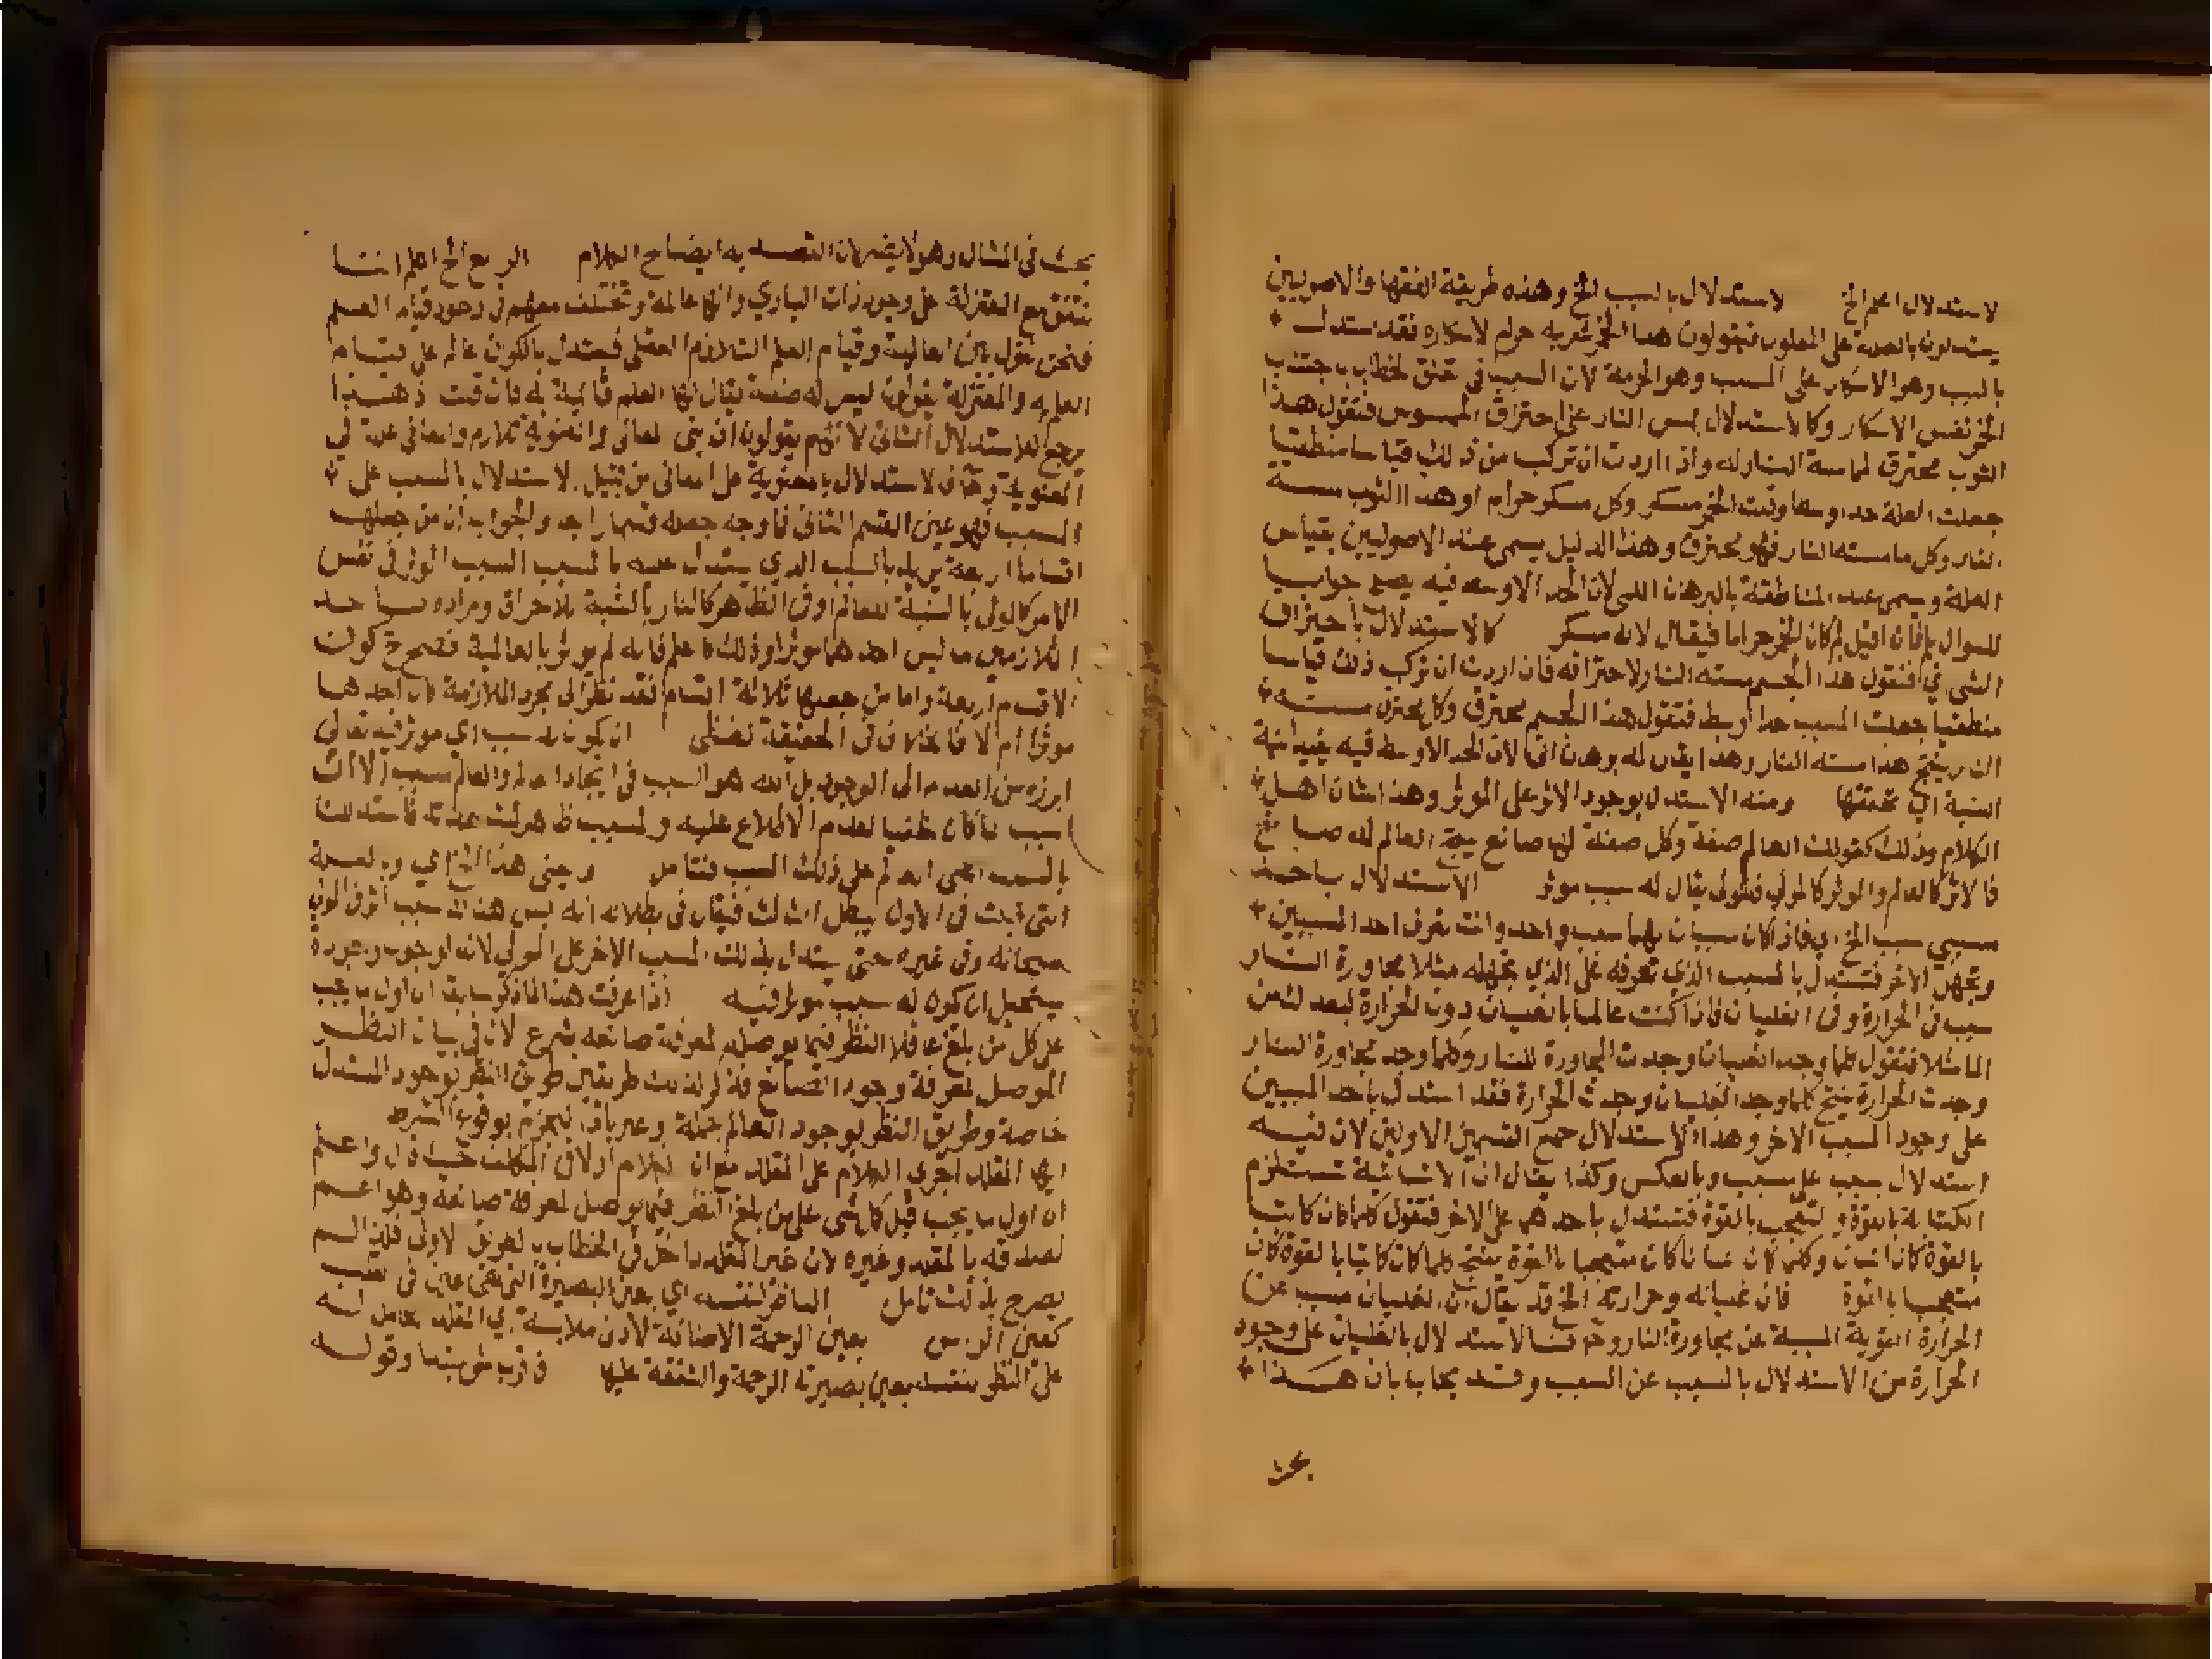 لاستدلال اعلم الخ لاستدلال بالسبب الخ وهذه طريقة الفقها والاصوليين
يستدلون بالعلة على المعلول فيقولون هذا الخمر شربه حرام لاسكاره فقد استدل
بالسبب وهو الاسكار على المسبب وهو الحرمة لان السبب في تعلق الخطاب باجتناب
الخمر نفس الاسكار وكالاستدلال بمس النار على احتراق الممسوس فتقول هذا
الثوب محترق لمماسة النار له واذا اردت ان تركب من ذلك قياسا منطقيا
جعلت العلة حدا وسطا وقلت الخمر مسكر وكل مسكر حرام او هذا الثوب مسته
النار وكل ما مسته النار فهو محترق وهذا الدليل يسمى عند الاصوليين بقياس
العلة ويسمى عند المناطقة بالبرهان اللمي لان الحد الاوسط فيه يصح جوابا
للسوال بلم فان قيل لم كان الخمر حراما فيقال لانه مسكر كالاستدلال باحتراق
الشي اي فنقول هذا الجسم مسته النار لاحتراقه فان اردت ان تركب ذلك قياسا
منطقيا جعلت المسبب حدا اوسط فتقول هذا الجسم محترق وكل محترق مسته
النار ينتج هذا مسته النار وهذا يقال له برهان اني لان الحد الاوسط فيه يفيد انية
النسبة اي تحققها ومنه الاستدلال بوجود الاثر على الموثر وهذا شان اهل
الكلام وذلك كقولك العالم صنعة وكل صنعة لها صانع ينتج العالم له صانع
فالاثر كالعالم والموثر كالمولى فالمولى يقال له سبب موثر الاستدلال باحد
مسببي سبب الخ اي فاذا كان مسببان لهما سبب واحد وانت تعرف احد المسببين
وتجهل الاخر فتستدل بالمسبب الذي تعرفه على الذي تجهله مثلا مجاورة النار
سبب في الحرارة وفي الغليان فاذا كنت عالما بالغليان دون الحرارة لبعدك من
الماء مثلا فتقول كلما وجد الغليان وجدت المجاورة للنار وكلما وجد مجاورة النار
وجدت الحرارة ينتج كلما وجد الغليان وجدت الحرارة فقد استدل باحد المسببين
على وجود المسبب الاخر وهذا الاستدلال جمع القسمين الاولين لان فيه
استدلال بسبب على مسبب وبالعكس وكذا يقال ان الانسانية تستلزم
الكتابة بالقوة والتعجب بالقوة فتستدل باحدهما على الاخر فتقول كلما كان كاتبا
بالقوة كان انسان وكلما كان انسانا كان متعجبا بالقوة ينتج كلما كان كاتبا بالقوة كان
متعجبا بالقوة فان غليانه وحرارته الخ قد يقال ان الغليان مسبب عن
الحرارة القوية المسببة عن مجاورة النار وحينئذ فالاستدلال بالغليان على وجود
الحرارة من الاستدلال بالمسبب عن السبب وقد يجاب بان هذا
بحث
بحث في المثال وهو لا يضر لان القصد به ايضاح الكلام الرابع الخ اعلم اننا
نتفق مع المعتزلة على وجود ذات الباري وانها عالمة ونختلف معهم في وجود قيام العلم
فنحن نقول بين العالمية وقيام العلم التلازم العقلي فيستدل بالكون عالم على قيام
العلم به والمعتزلة يقولون ليس له صفة يقال لها العلم قائمة به فان قلت هذا
يرجع للاستدلال الثاني لانهم يقولون ان بين المعاني والمعنوية تلازم والمعاني علة في
المعنوية وحينئذ فالاستدلال بالمعنوية على المعاني من قبيل الاستدلال بالمسبب على
السبب فهو عين القسم الثاني فما وجه جعله قسما رابعا والجواب ان من جعلها
اقساما اربعة يريد بالسبب الذي يستدل عليه بالمسبب السبب الموثر في نفس
الامر كالمولى بالنسبة للعالم او في الظاهر كالنار بالنسبة للاحراق ومراده باحد
المتلازمين ما ليس احدهما موثرا وذلك كالعلم فانه لم يوثر بالعالمية فصح كون
الاقسام اربعة واما من جعلها ثلاثة اقسام فقد نظر الى مجرد الملازمة كان احدهما
موثرا ام لا فالخلاف في الحقيقة لفظي ان يكون له سبب اي موثر فيه تعالى
ابرزه من العدم الى الوجود بل الله هو السبب في ايجاد العالم والعالم مسبب الا ان
السبب لما كان خفيا لعدم الاطلاع عليه والمسبب ظاهر لمشاهدته فاستدللنا
بالمسبب اعني العالم على ذلك السبب فتامل وبمعنى هذا الخ اي وبالعلة
التي ثبتت في الاول يبطل الثالث فيقال في بطلانه انه ليس هناك سبب اثر في المولى
سبحانه وفي غيره حتى يستدل بذلك المسبب الاخر على المولى لانه لوجوب وجوده
يستحيل ان يكون له سبب موثر فيه اذا عرفت هذا الماذكر سابقا ان اول ما يجب
على كل من بلغ عاقلا النظر فيما يوصله لمعرفة صانعه شرع الان في بيان النظر
الموصل لمعرفة وجود الصانع فذكر لذلك طريقين طريق النظر بوجود المستدل
خاصة وطريق النظر بوجود العالم جملة وعبر باذا للجزم بوقوع الشرط
ايها المقلد اجرى الكلام على المقلد مع ان الكلام اولا في المكلف حيث قال واعلم
ان اول ما يجب قبل كل شي على من بلغ النظر فيما يوصل لمعرفة صانعه وهو اعم
لصدقه بالمقلد وغيره لان غير المقلد داخل في الخطاب بالطريق الاولى فلذا لم
يصرح بذلك تامل الناظر لنفسه اي بعين البصيرة التي هي عين في القلب
كعين الراس بعين الرحمة الاضافة لادنى ملابسة اي المقلد الحامل له
على النظر لنفسه بعين بصيرته الرحمة والشفقة عليها فاقرب شي مبتدا وقوله